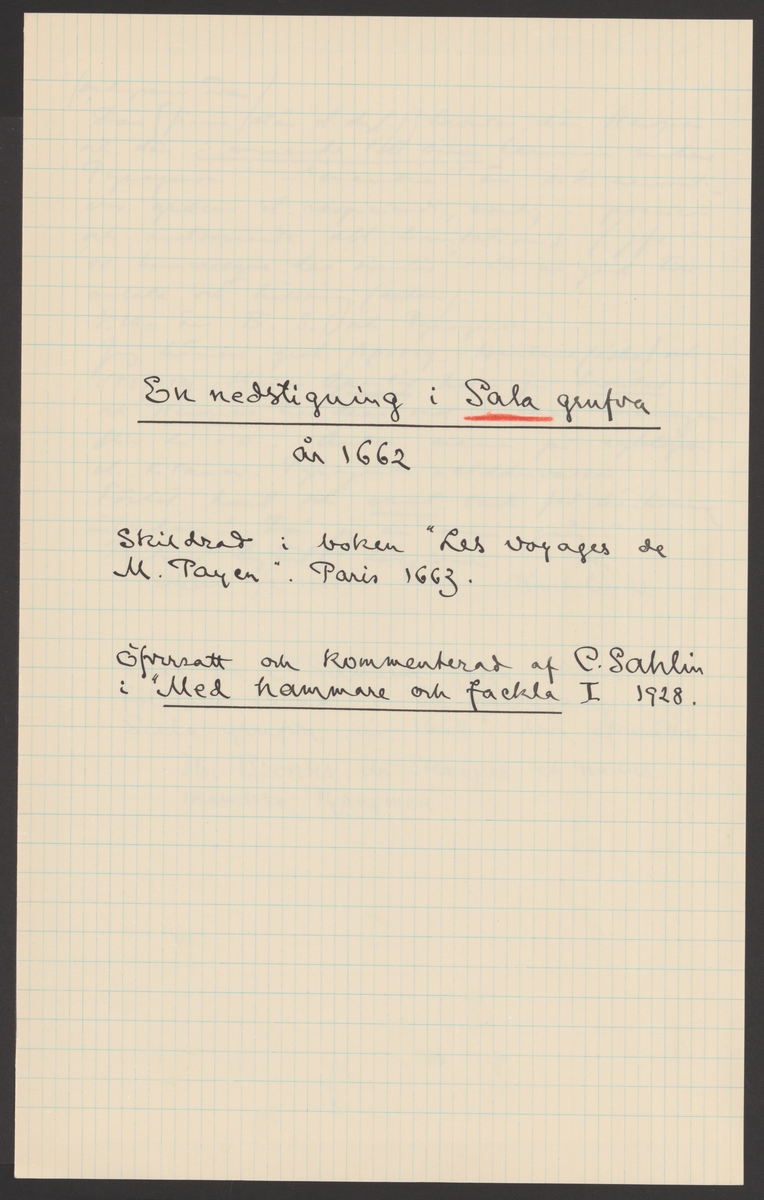 En nedstigning i Sala grufva
år 1662
Skildrad i boken "Les voyages de
M. Payen". Paris 1663.
Öfversatt och kommenterad af C. Sahlin
i "Med hammare och fackla I 1928.